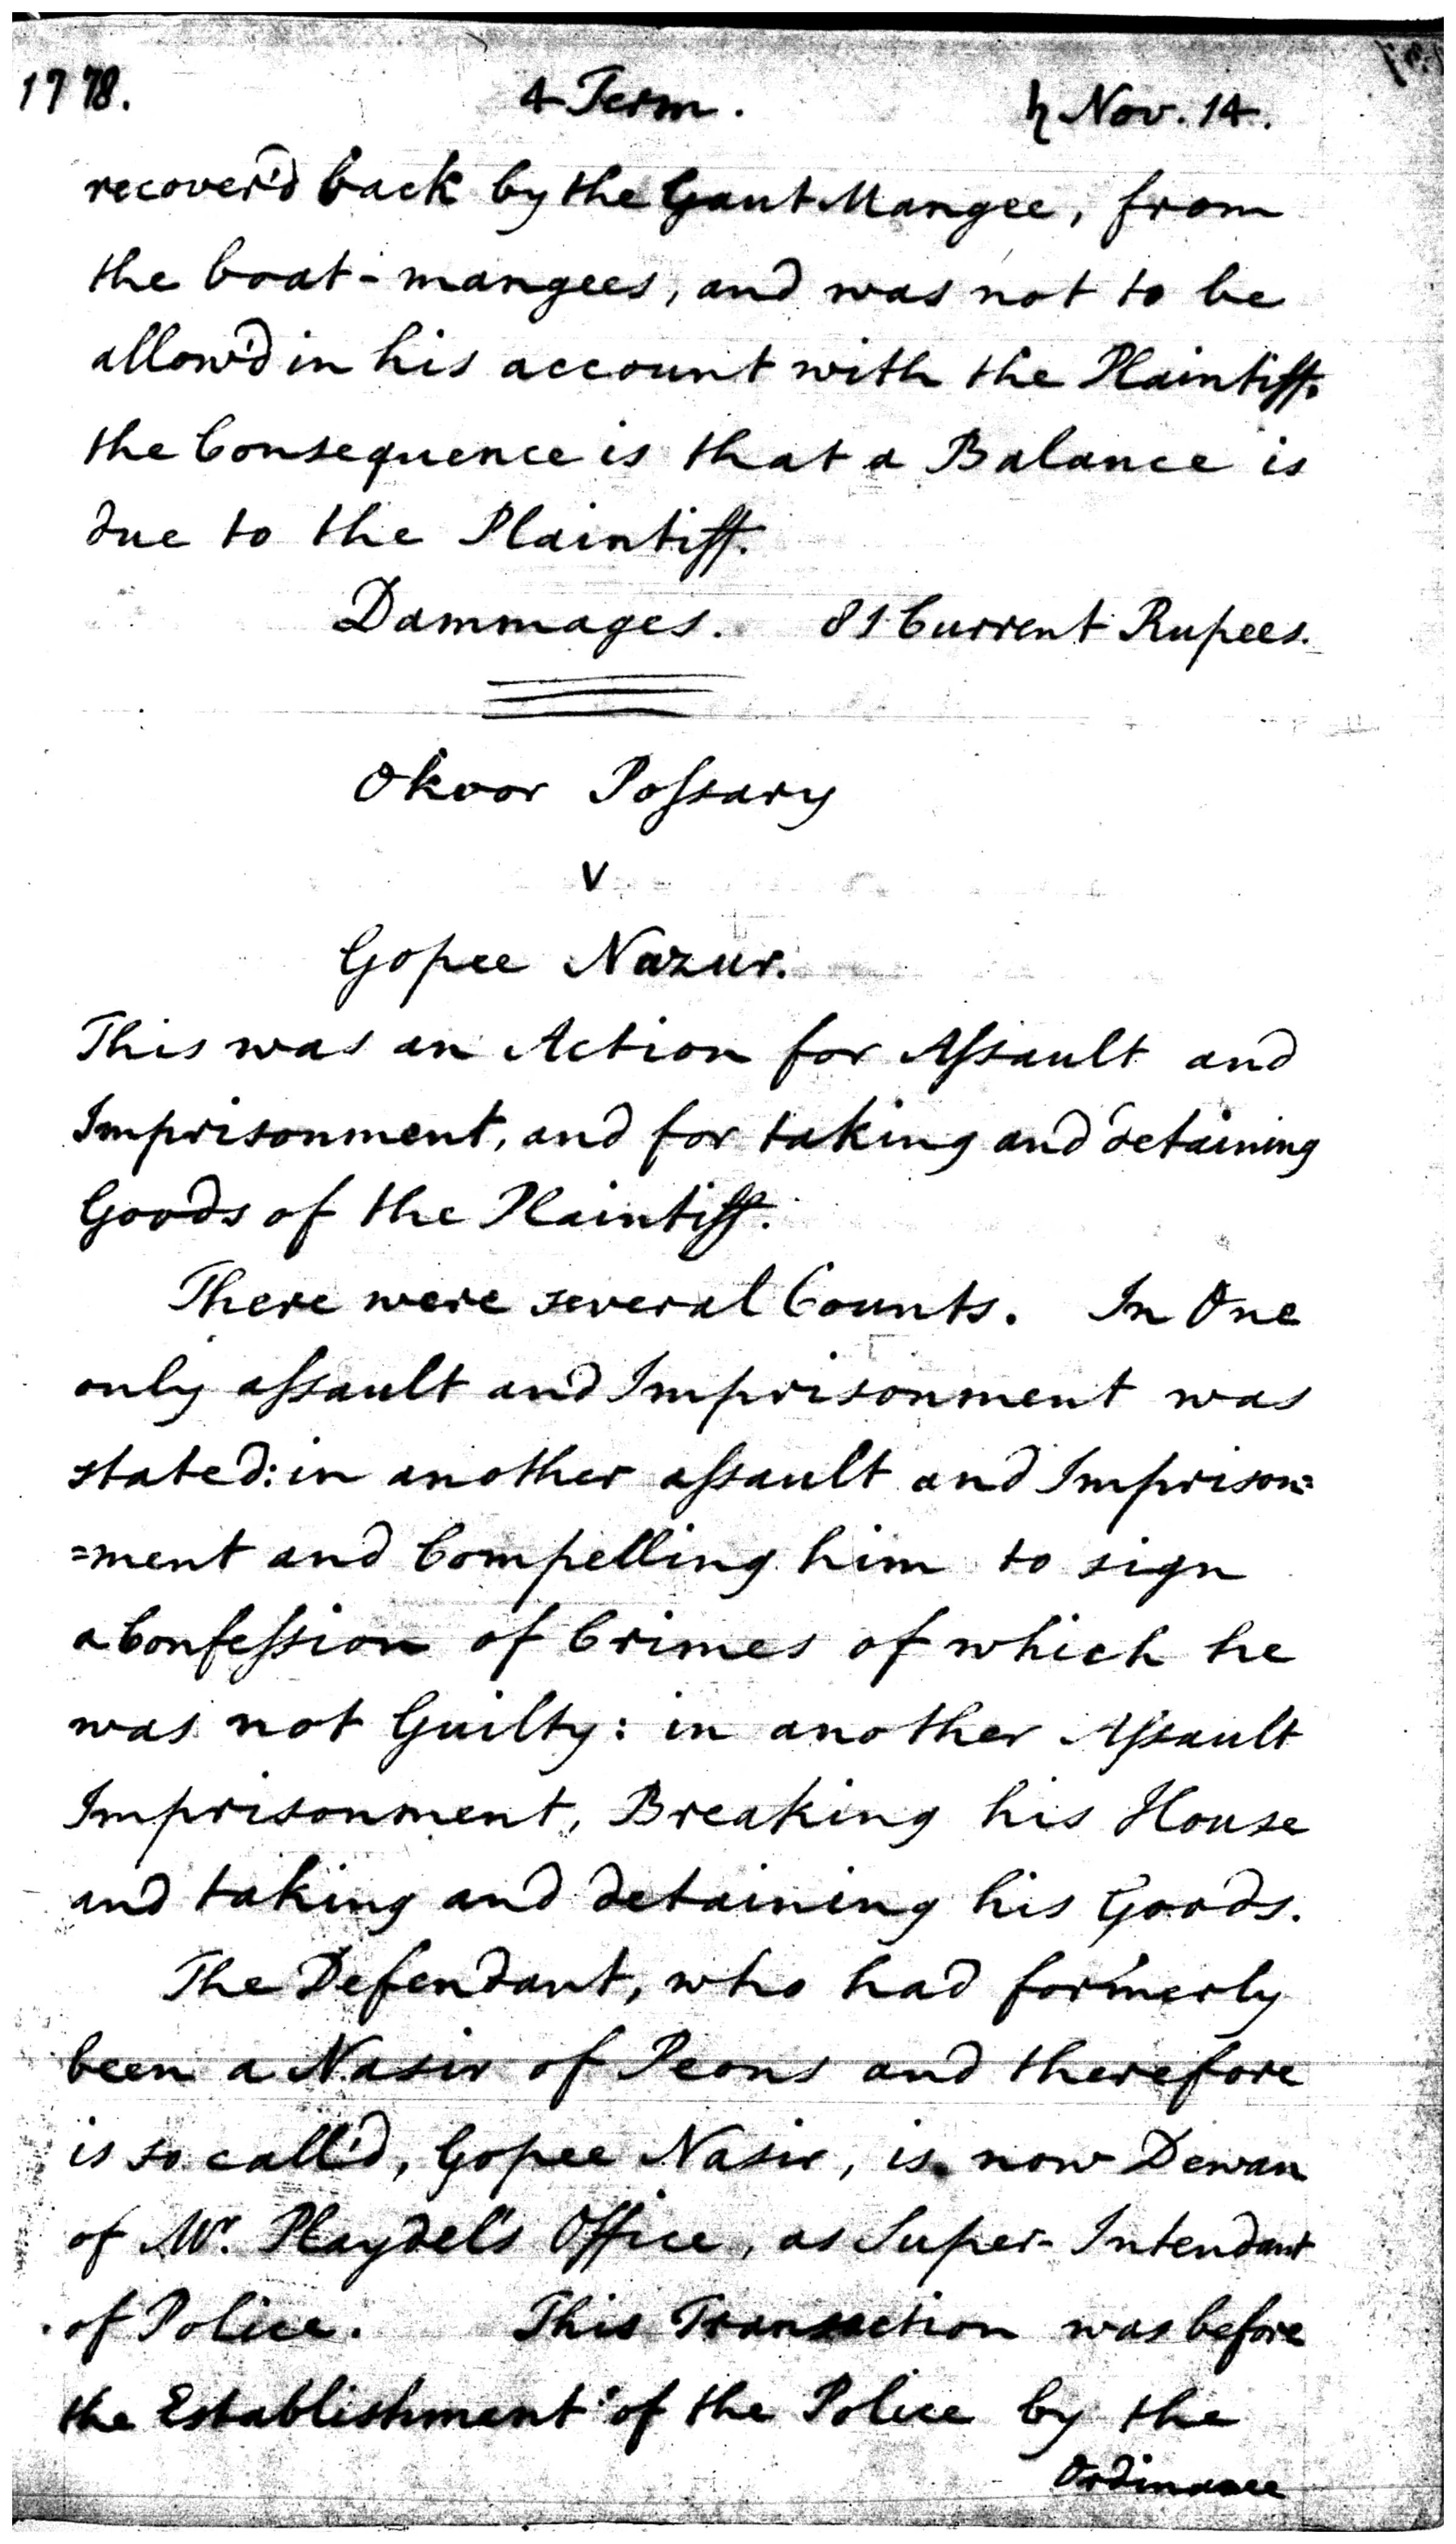 1778. 4 Term. ♄ Nov. 14.
recover'd back by the Gaut Mangee, from
the boat-mangees, and was not to be
allow'd in his account with the Plaintiff.
the Consequence is that a Balance is
due to the Plaintiff.
Dammages. 81 Current Rupees.
Okoor Poſsary
v
Gopee Nazur.
This was an Action for Aſsault and
Imprisonment, and for taking and detaining
Goods of the Plaintiff.
There were several Counts. In One
only aſsault and Imprisonment was
stated: in another aſsault and Imprison=
=ment and Compelling him to sign
a Confeſsion of Crimes of which he
was not Guilty: in another Aſsault
Imprisonment, Breaking his House
and taking and detaining his Goods.
The Defendant, who had formerly
been a Nasir of Peons and therefore
is so call'd, Gopee Nasir, is now Dewan
of Mr. Playdel's Office, as Super-Intendant
of Police. This Transaction was before
the Establishment of the Police by the
Ordinance